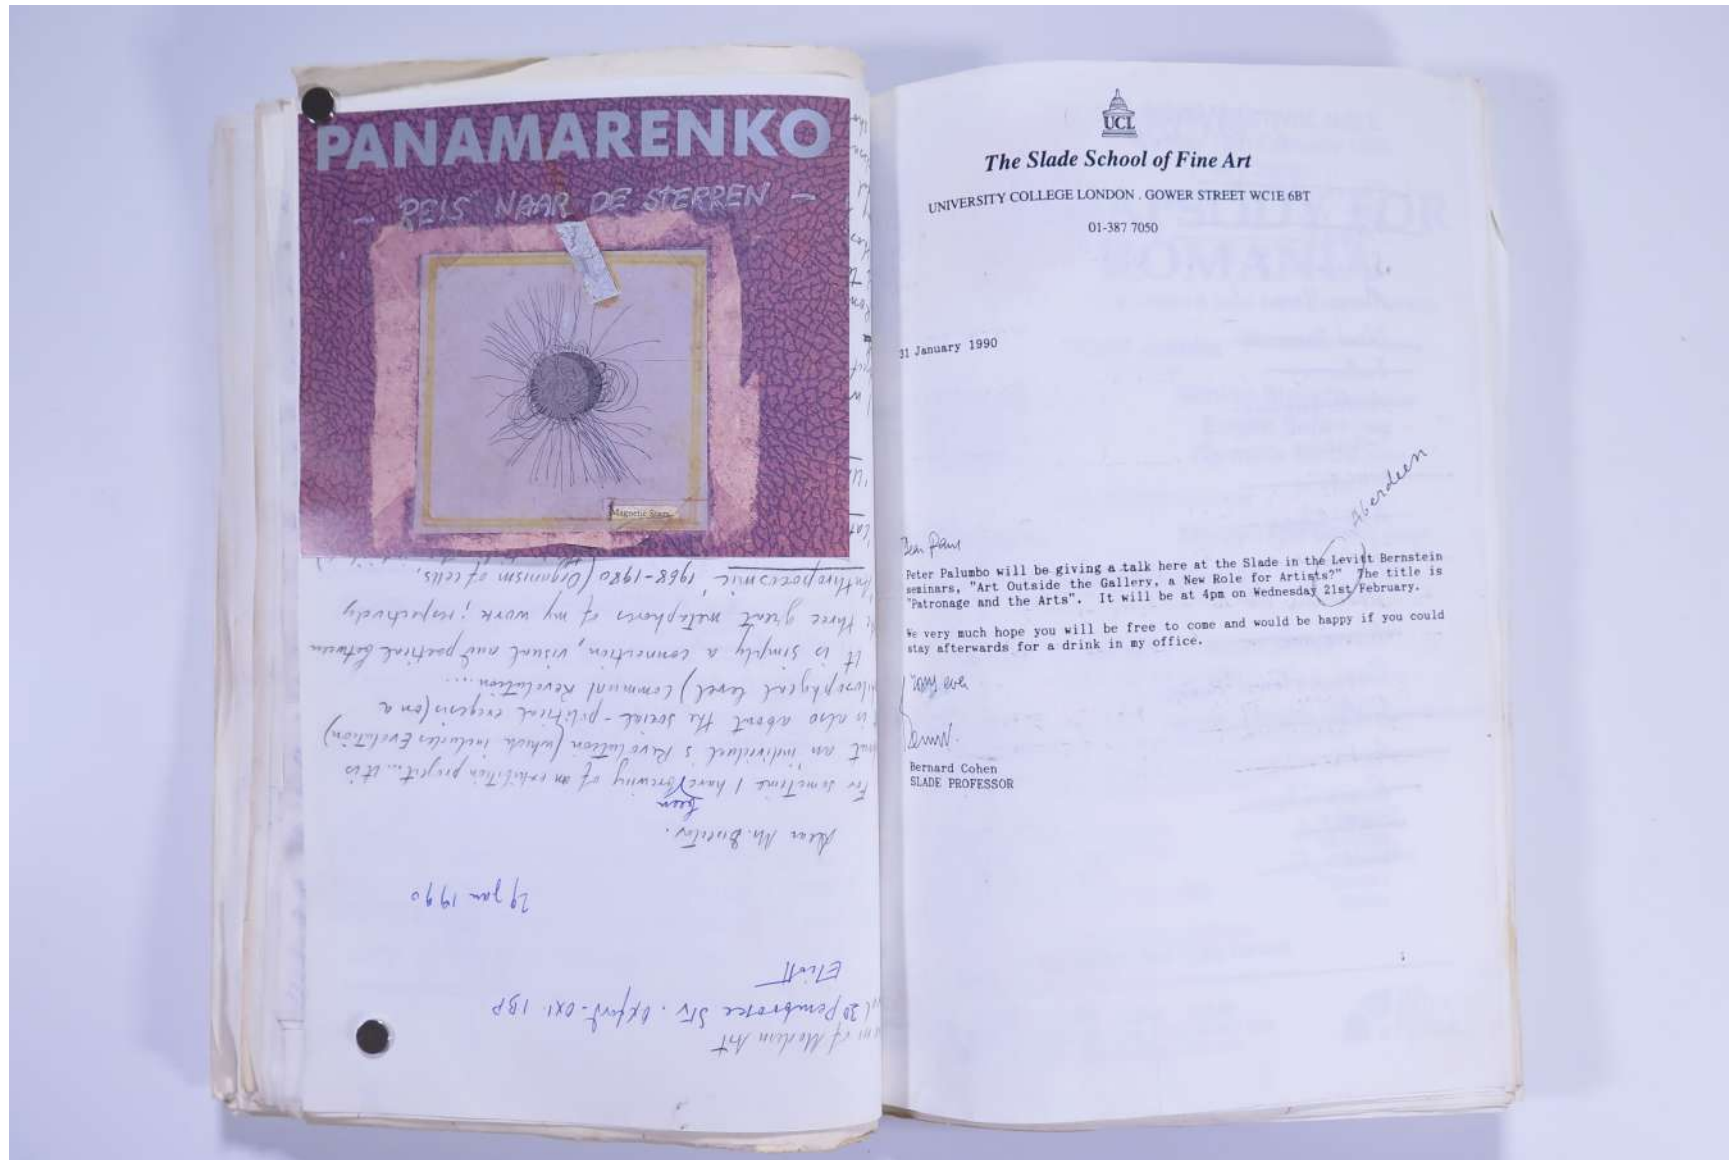 PANAMARENKO
- REIS NAAR DE STERREN -
Magnetic Stars
Museum of Modern Art
30 Pembroke Str. Oxford - OX1 1BP
Eliott
29 jan 1990
Dear Mr. Director.
been
For sometime I have brewing of an exhibition project... it is
an individuel's Revolution (which includes Evolution)
is also about the social-political exegesis (on a
level) communal Revolution....
It is simply a connection, visual and poetical between
three great metaphors of my work; respectively
"Anthropocosmic", 1968-1980 (Organism of cells,
UCL
The Slade School of Fine Art
UNIVERSITY COLLEGE LONDON . GOWER STREET WC1E 6BT
01-387 7050
31 January 1990
Aberdeen
Dear Paul
Peter Palumbo will be giving a talk here at the Slade in the Levitt Bernstein
seminars, "Art Outside the Gallery, a New Role for Artists?" The title is
"Patronage and the Arts". It will be at 4pm on Wednesday 21st February.
We very much hope you will be free to come and would be happy if you could
stay afterwards for a drink in my office.
ever
Bernard Cohen
SLADE PROFESSOR